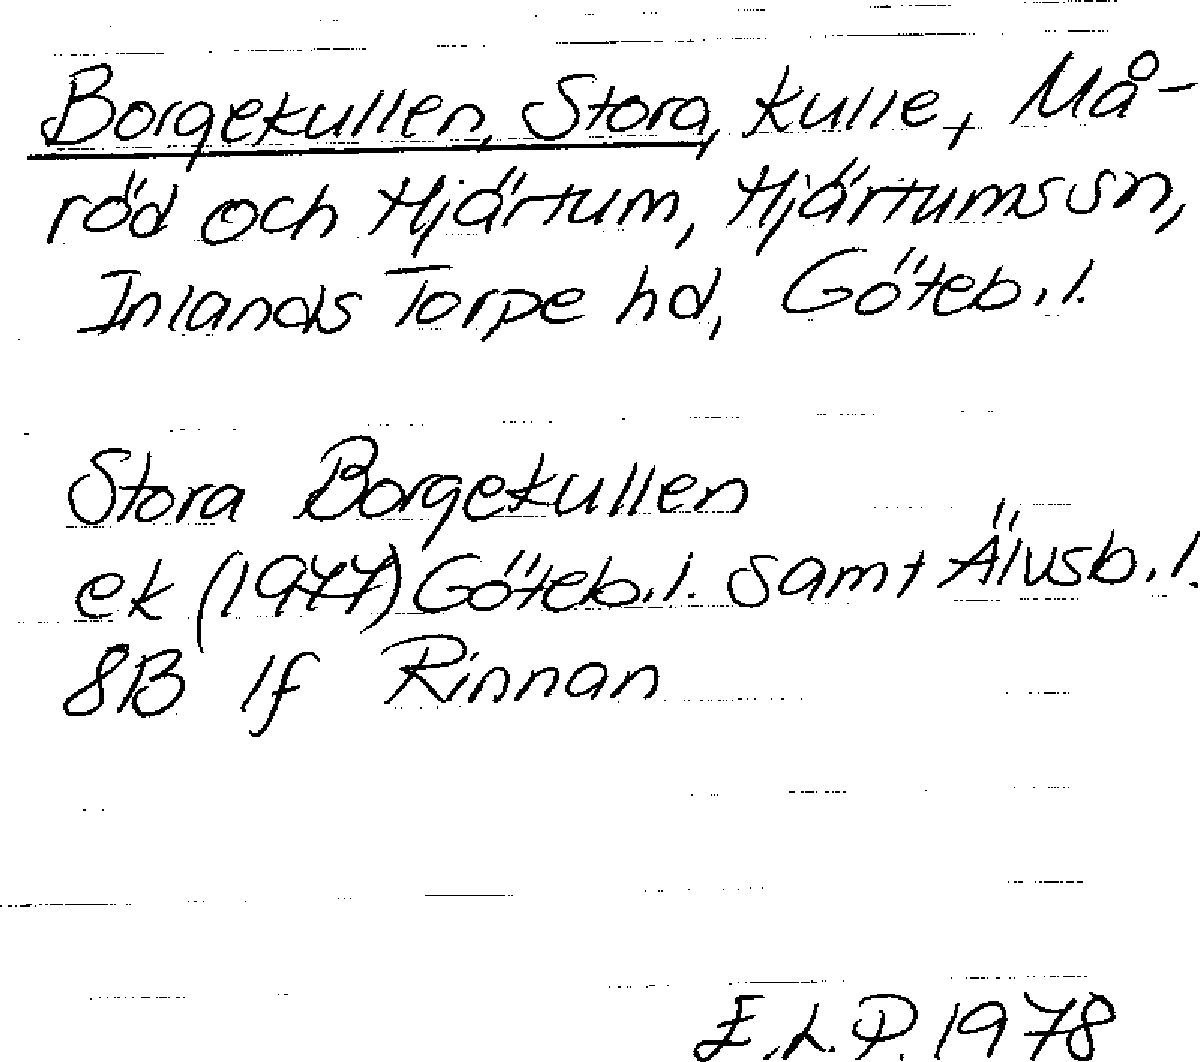 Borgekullen, Stora, kulle, Må-
röd och Hjärtum, Hjärtums sn,
Inlands Torpe hd, Göteb.l.
Stora Borgekullen
ek (1977) Göteb.l. samt Älvsb.l.
8B 1f Rinnan
E.L.P. 1978